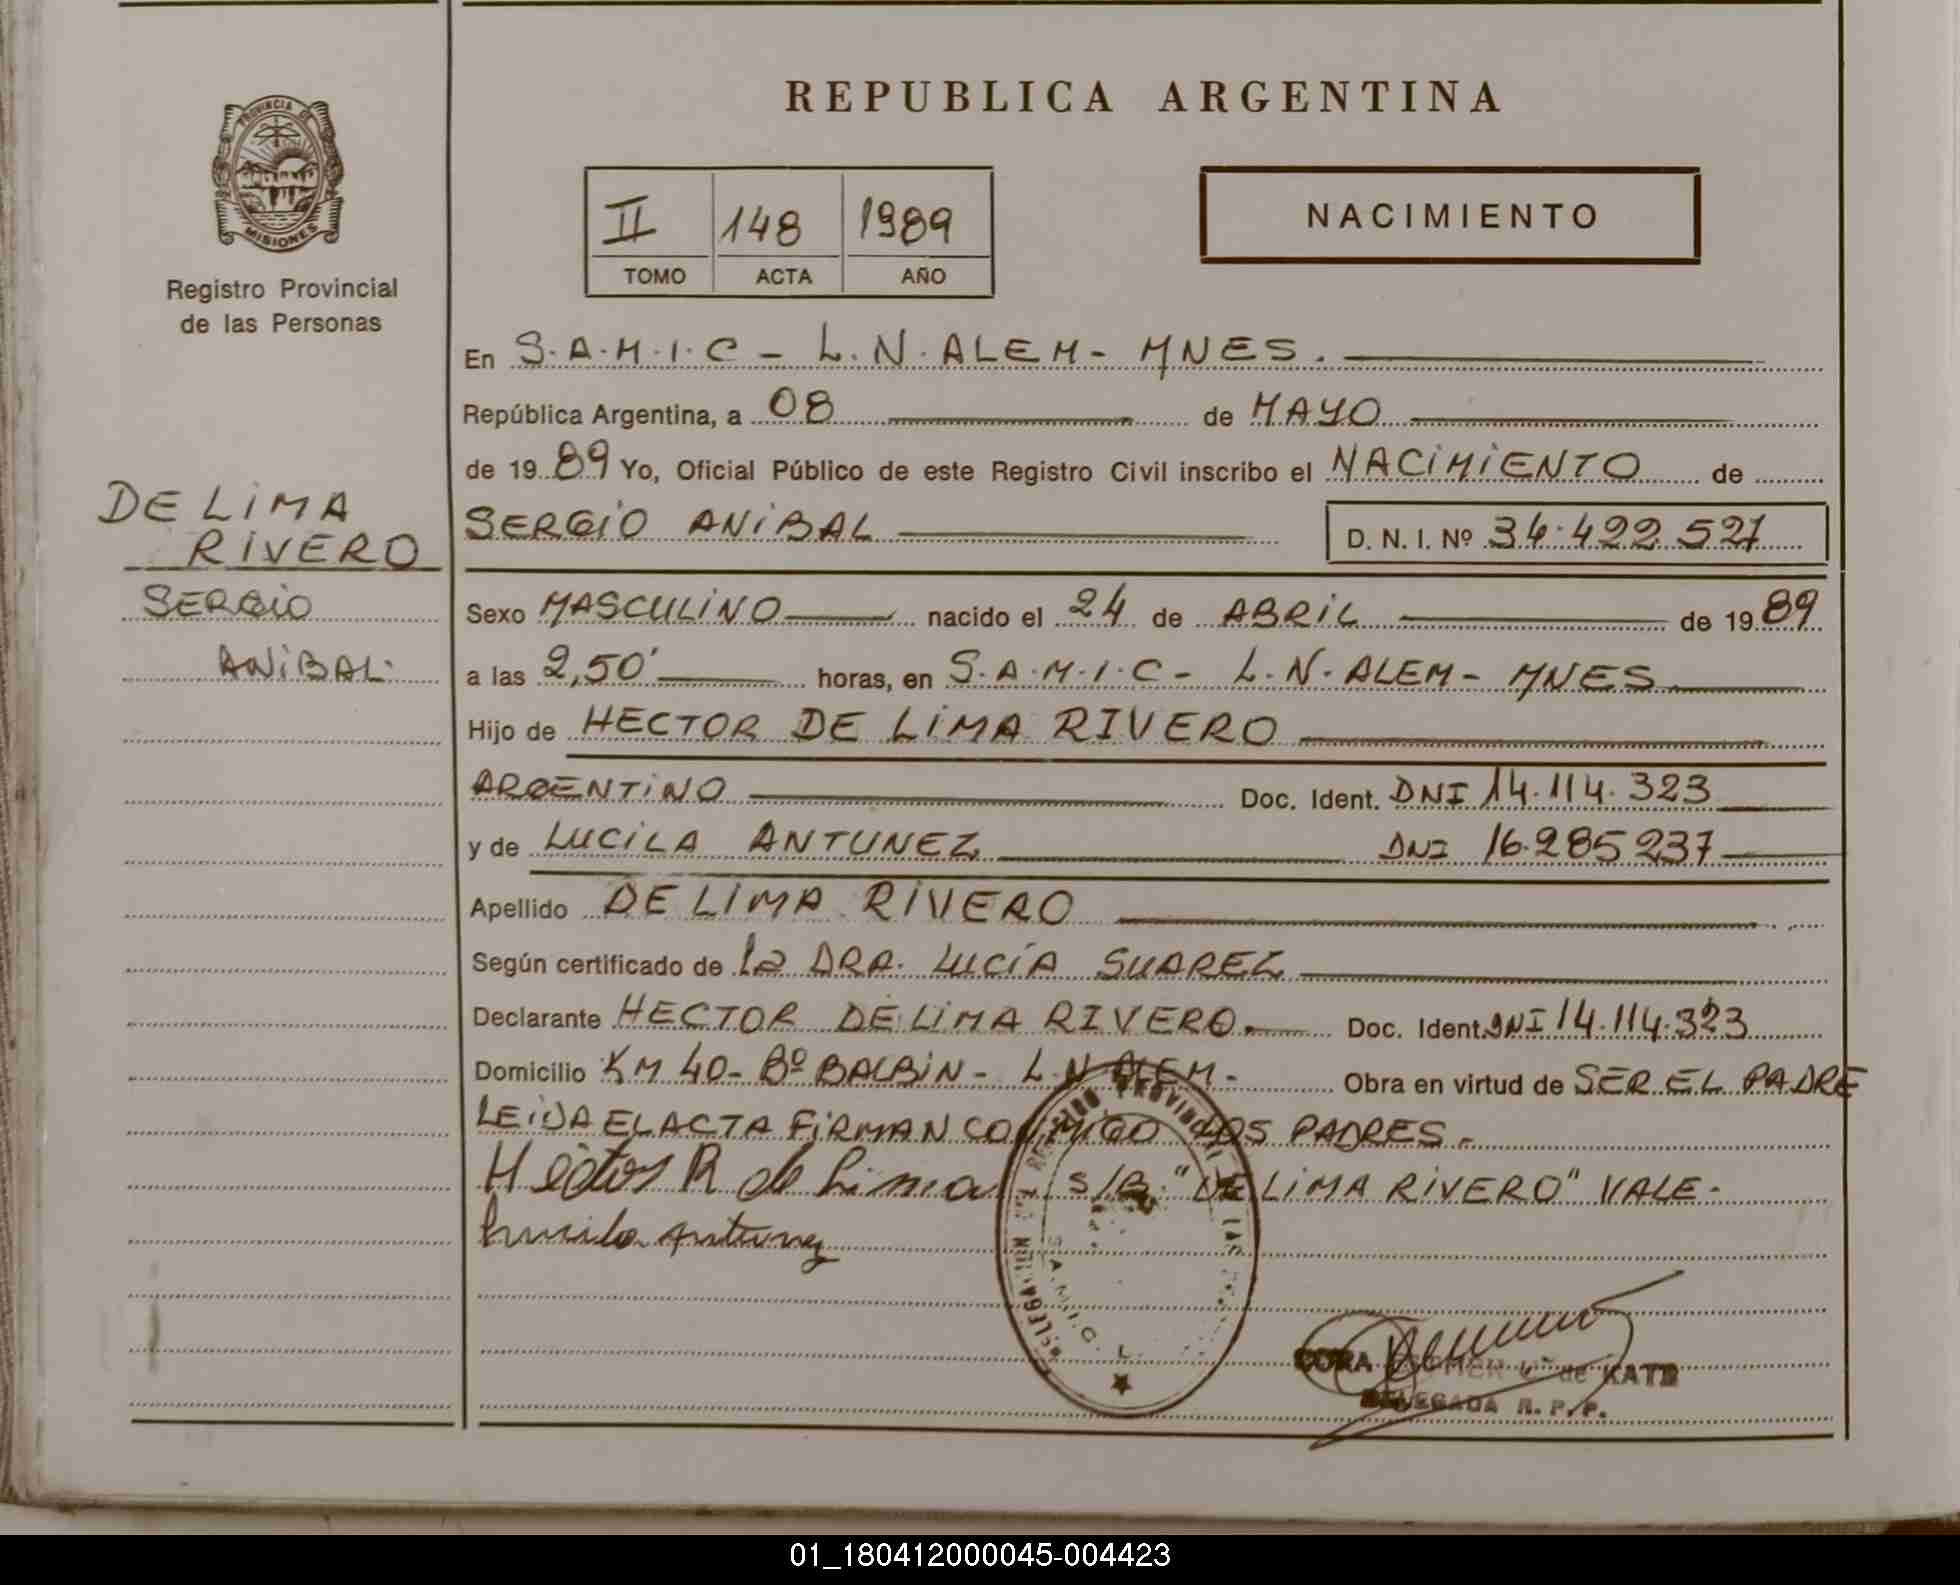 REPUBLICA ARGENTINA
PROVINCIA DE
MISIONES
Registro Provincial
de las Personas
II 148 1989
TOMO ACTA AÑO
NACIMIENTO
DE LIMA
RIVERO
SERGIO
ANIBAL.
En S.A.M.I.C - L.N.ALEM - MNES.
República Argentina, a 08 de MAYO
de 1989 Yo, Oficial Público de este Registro Civil inscribo el NACIMIENTO de
SERGIO ANIBAL D. N. I. Nº 34.422.527
Sexo MASCULINO nacido el 24 de ABRIL de 1989
a las 2,50' horas, en S.A.M.I.C - L.N.ALEM - MNES
Hijo de HECTOR DE LIMA RIVERO
ARGENTINO Doc. Ident. DNI 14.114.323
y de LUCILA ANTUNEZ DNI 16.285237
Apellido DE LIMA RIVERO
Según certificado de la DRA. LUCÍA SUAREZ
Declarante HECTOR DE LIMA RIVERO. Doc. Ident. DNI 14.114.323
Domicilio KM 40 - Bº BALBIN - L N ALEM - Obra en virtud de SER EL PADRE
LEIDA EL ACTA FIRMAN CONMIGO LOS PADRES.
Hector R de Lima S/B. "DE LIMA RIVERO" VALE.
Lucila Antunez
S.A.M.I.C. L.
CORA de KATZ
DELEGADA R.P.P.
01_180412000045-004423